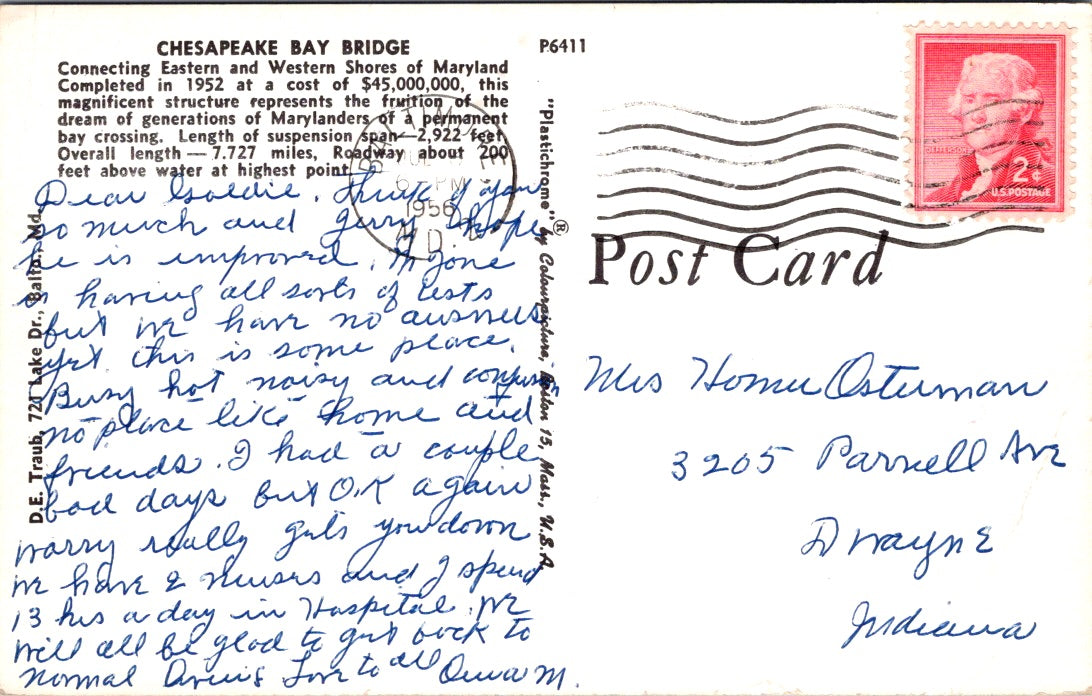 CHESAPEAKE BAY BRIDGE
Connecting Eastern and Western Shores of Maryland
Completed in 1952 at a cost of $45,000,000, this
magnificent structure represents the fruition of the
dream of generations of Marylanders of a permanent
bay crossing. Length of suspension span—2,922 feet,
Overall length — 7.727 miles, Roadway about 200
feet above water at highest point.
Dear Goldie. Think of you
so much and Jerry I hope
he is improved.
is having all sorts of tests
but we have no answers
yet this is some place.
Busy hot noisy and
no place like home and
friends. I had a couple
bad days but O.K again
worry really gets you down
we have 2 nurses and I spend
13 hrs a day in Hospital. We
will all be glad to get back to
normal Love to all M.
D.E. Traub, 721 Lake Dr., Balto., Md.
P.6411
"Plastichrome" ® by Colourpicture, Boston 15, Mass., U.S.A
BALTIMORE
6 - PM
1956
MD.
JEFFERSON
2¢
U.S. POSTAGE
Post Card
Mrs Homer Osterman
3205 Parnell Ave
Ft Wayne
Indiana